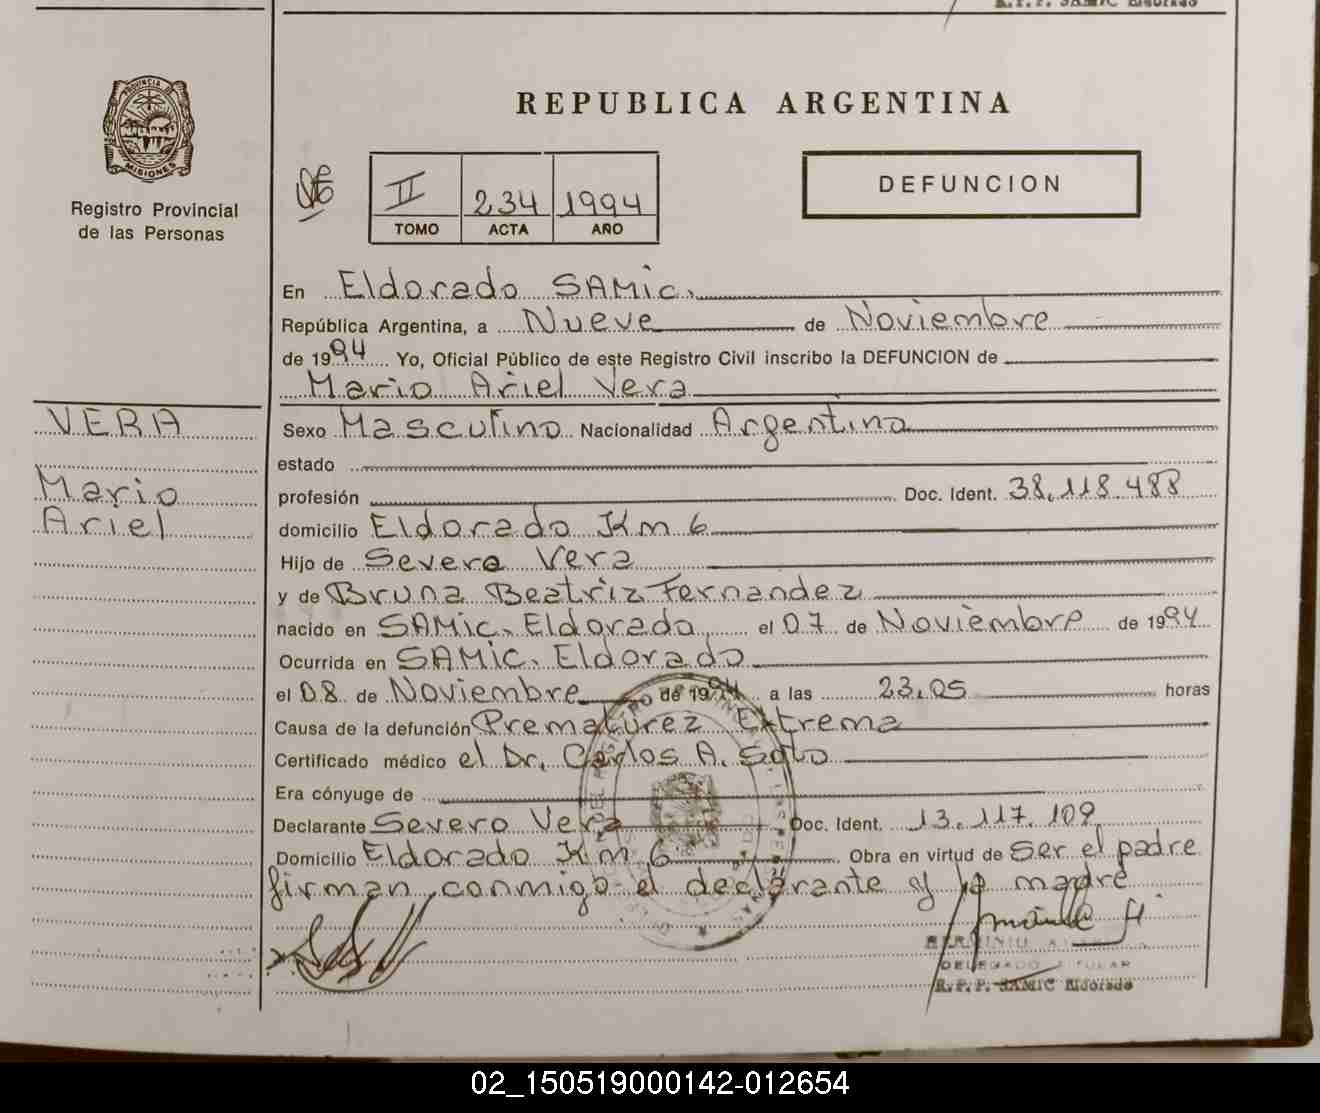 R.P.P. SAMIC Eldorado
PROVINCIA DE
MISIONES
Registro Provincial
de las Personas
REPUBLICA ARGENTINA
II 234 1994
TOMO ACTA AÑO
DEFUNCION
En Eldorado SAMic.
República Argentina, a Nueve de Noviembre
de 1994 Yo, Oficial Público de este Registro Civil inscribo la DEFUNCION de
Mario Ariel Vera
VERA
Mario
Ariel
Sexo Masculino Nacionalidad Argentina
estado
profesión Doc. Ident. 38.118.488
domicilio Eldorado Km 6
Hijo de Severo Vera
y de Bruna Beatriz Fernandez
nacido en SAMic. Eldorado el 07 de Noviembre de 1994
Ocurrida en SAMic. Eldorado
el 08 de Noviembre de 1994 a las 23,05 horas
Causa de la defunción Prematurez Extrema
Certificado médico el Dr. Carlos A. Soto
Era cónyuge de
Declarante Severo Vera Doc. Ident. 13.117.109
Domicilio Eldorado Km 6 Obra en virtud de Ser el padre
firman conmigo el declarante y la madre
HERMINIO
DELEGADO TITULAR
R.P.P. SAMIC Eldorado
02_150519000142-012654